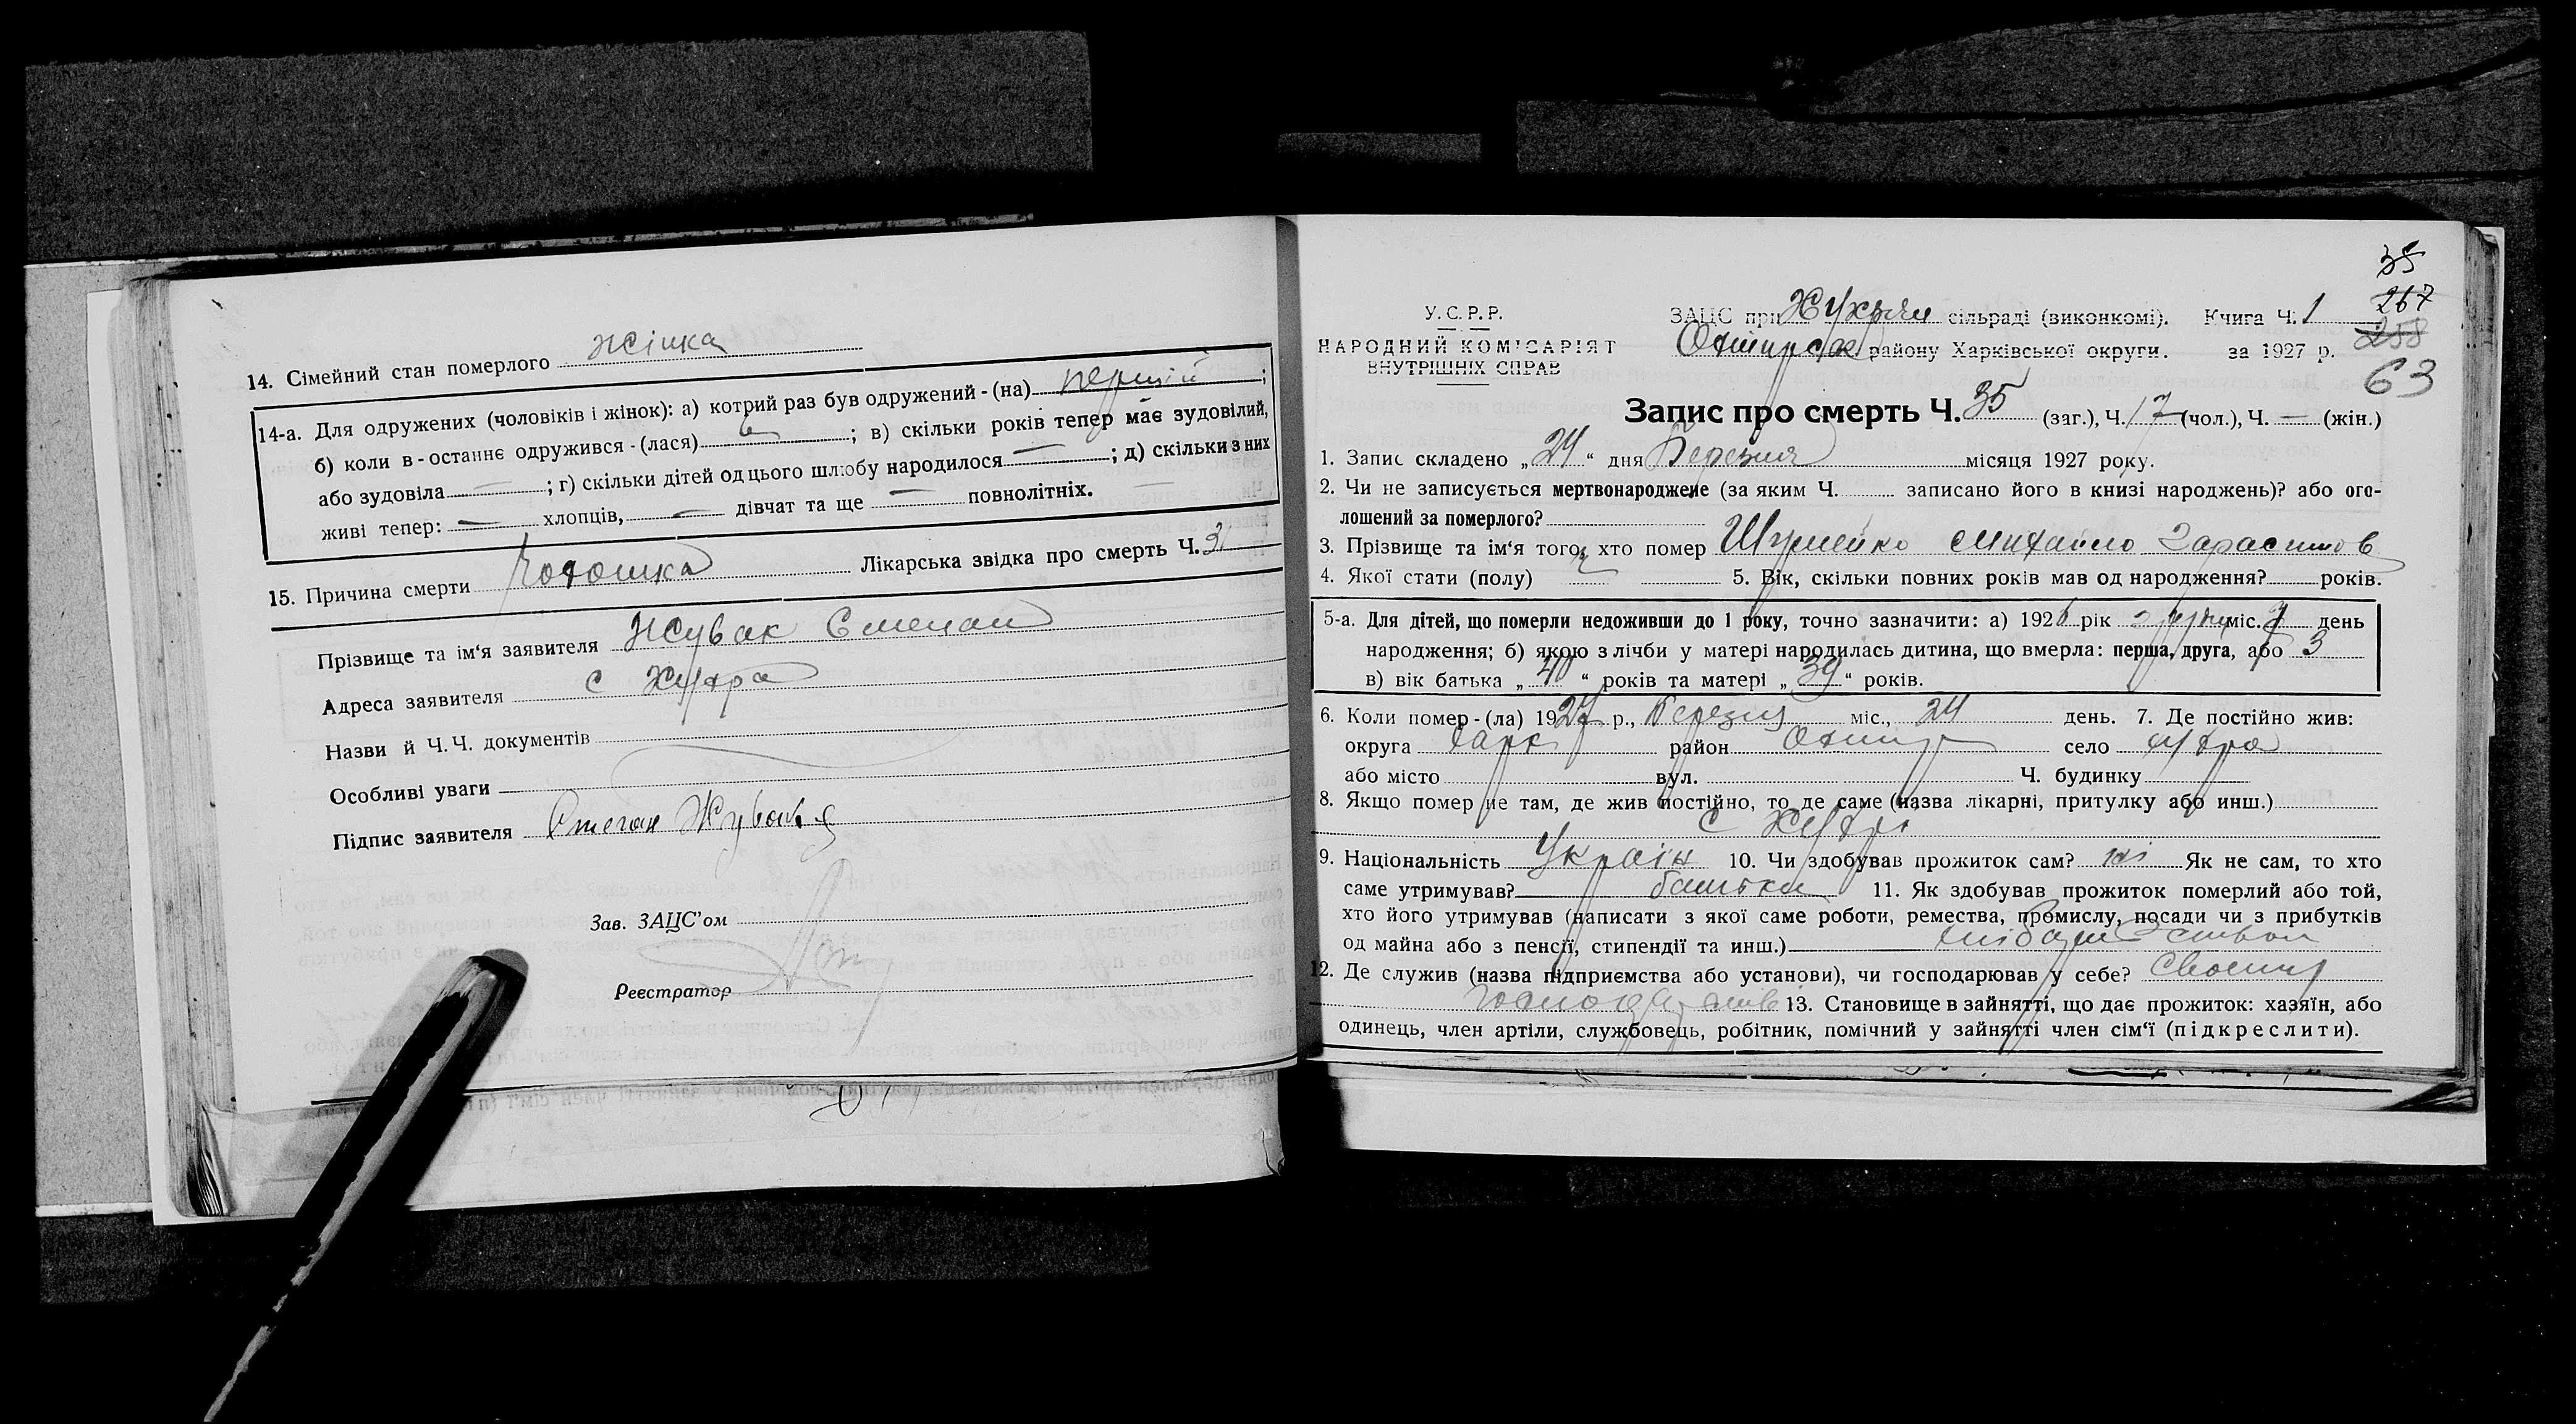 14. Сімейний стан померлого жінка
14-а. Для одружених (чоловіків і жінок): а) котрий раз був одружений - (на) перший ;
б) коли в - останнє одружився - (лася) ; в) скільки років тепер має зудовілий,
або зудовіла — ; г) скільки дітей од цього шлюбу народилося — ; д) скільки з них
живі тепер: — хлопців, — дівчат та ще — повнолітніх. —
15. Причина смерти Лікарська звідка про смерть Ч. 31
Прізвище та ім'я заявителя Жувак Степан
Адреса заявителя с Хухра
Назви й Ч. Ч. документів
Особливі уваги
Підпис заявителя Степан Жувак
Зав. ЗАЦС'ом
Реєстратор
35
267
258
63
У. С. Р. Р.
НАРОДНИЙ КОМІСАРІЯТ
ВНУТРІШНІХ СПРАВ
ЗАЦС при Хухрян сільраді (виконкомі). Книга Ч. 1
Охтирськ району Харківської округи. за 1927 р.
Запис про смерть Ч. 35 (заг.), Ч. 17 (чол.), Ч. — (жін.)
1. Запис складено „24“ дня Березня місяця 1927 року.
2. Чи не записується мертвонароджене (за яким Ч. записано його в книзі народжень)? або ого-
лошений за померлого?
3. Прізвище та ім'я того, хто помер Михайло Гарасимов
4. Якої стати (полу) ч 5. Вік, скільки повних років мав од народження? років.
5-а. Для дітей, що померли недоживши до 1 року, точно зазначити: а) 1926 рік міс. день
народження; б) якою з лічби у матері народилась дитина, що вмерла: перша, друга, або 3
в) вік батька „40“ років та матері „39“ років.
6. Коли помер - (ла) 1927 р., Березня міс., 24 день. 7. Де постійно жив:
округа Харк район Охтир село Хухра
або місто вул. Ч. будинку
8. Якщо помер не там, де жив постійно, то де саме (назва лікарні, притулку або инш.)
с Хухрі
9. Національність Україн 10. Чи здобував прожиток сам? ні Як не сам, то хто
саме утримував? батьки 11. Як здобував прожиток померлий або той,
хто його утримував (написати з якої саме роботи, ремества, промислу, посади чи з прибутків
од майна або з пенсії, стипендії та инш.) хлібороб
12. Де служив (назва підприємства або установи), чи господарював у себе? Своєму
господарстві 13. Становище в зайнятті, що дає прожиток: хазяїн, або
одинець, член артіли, службовець, робітник, помічний у зайнятті член сім'ї (підкреслити).